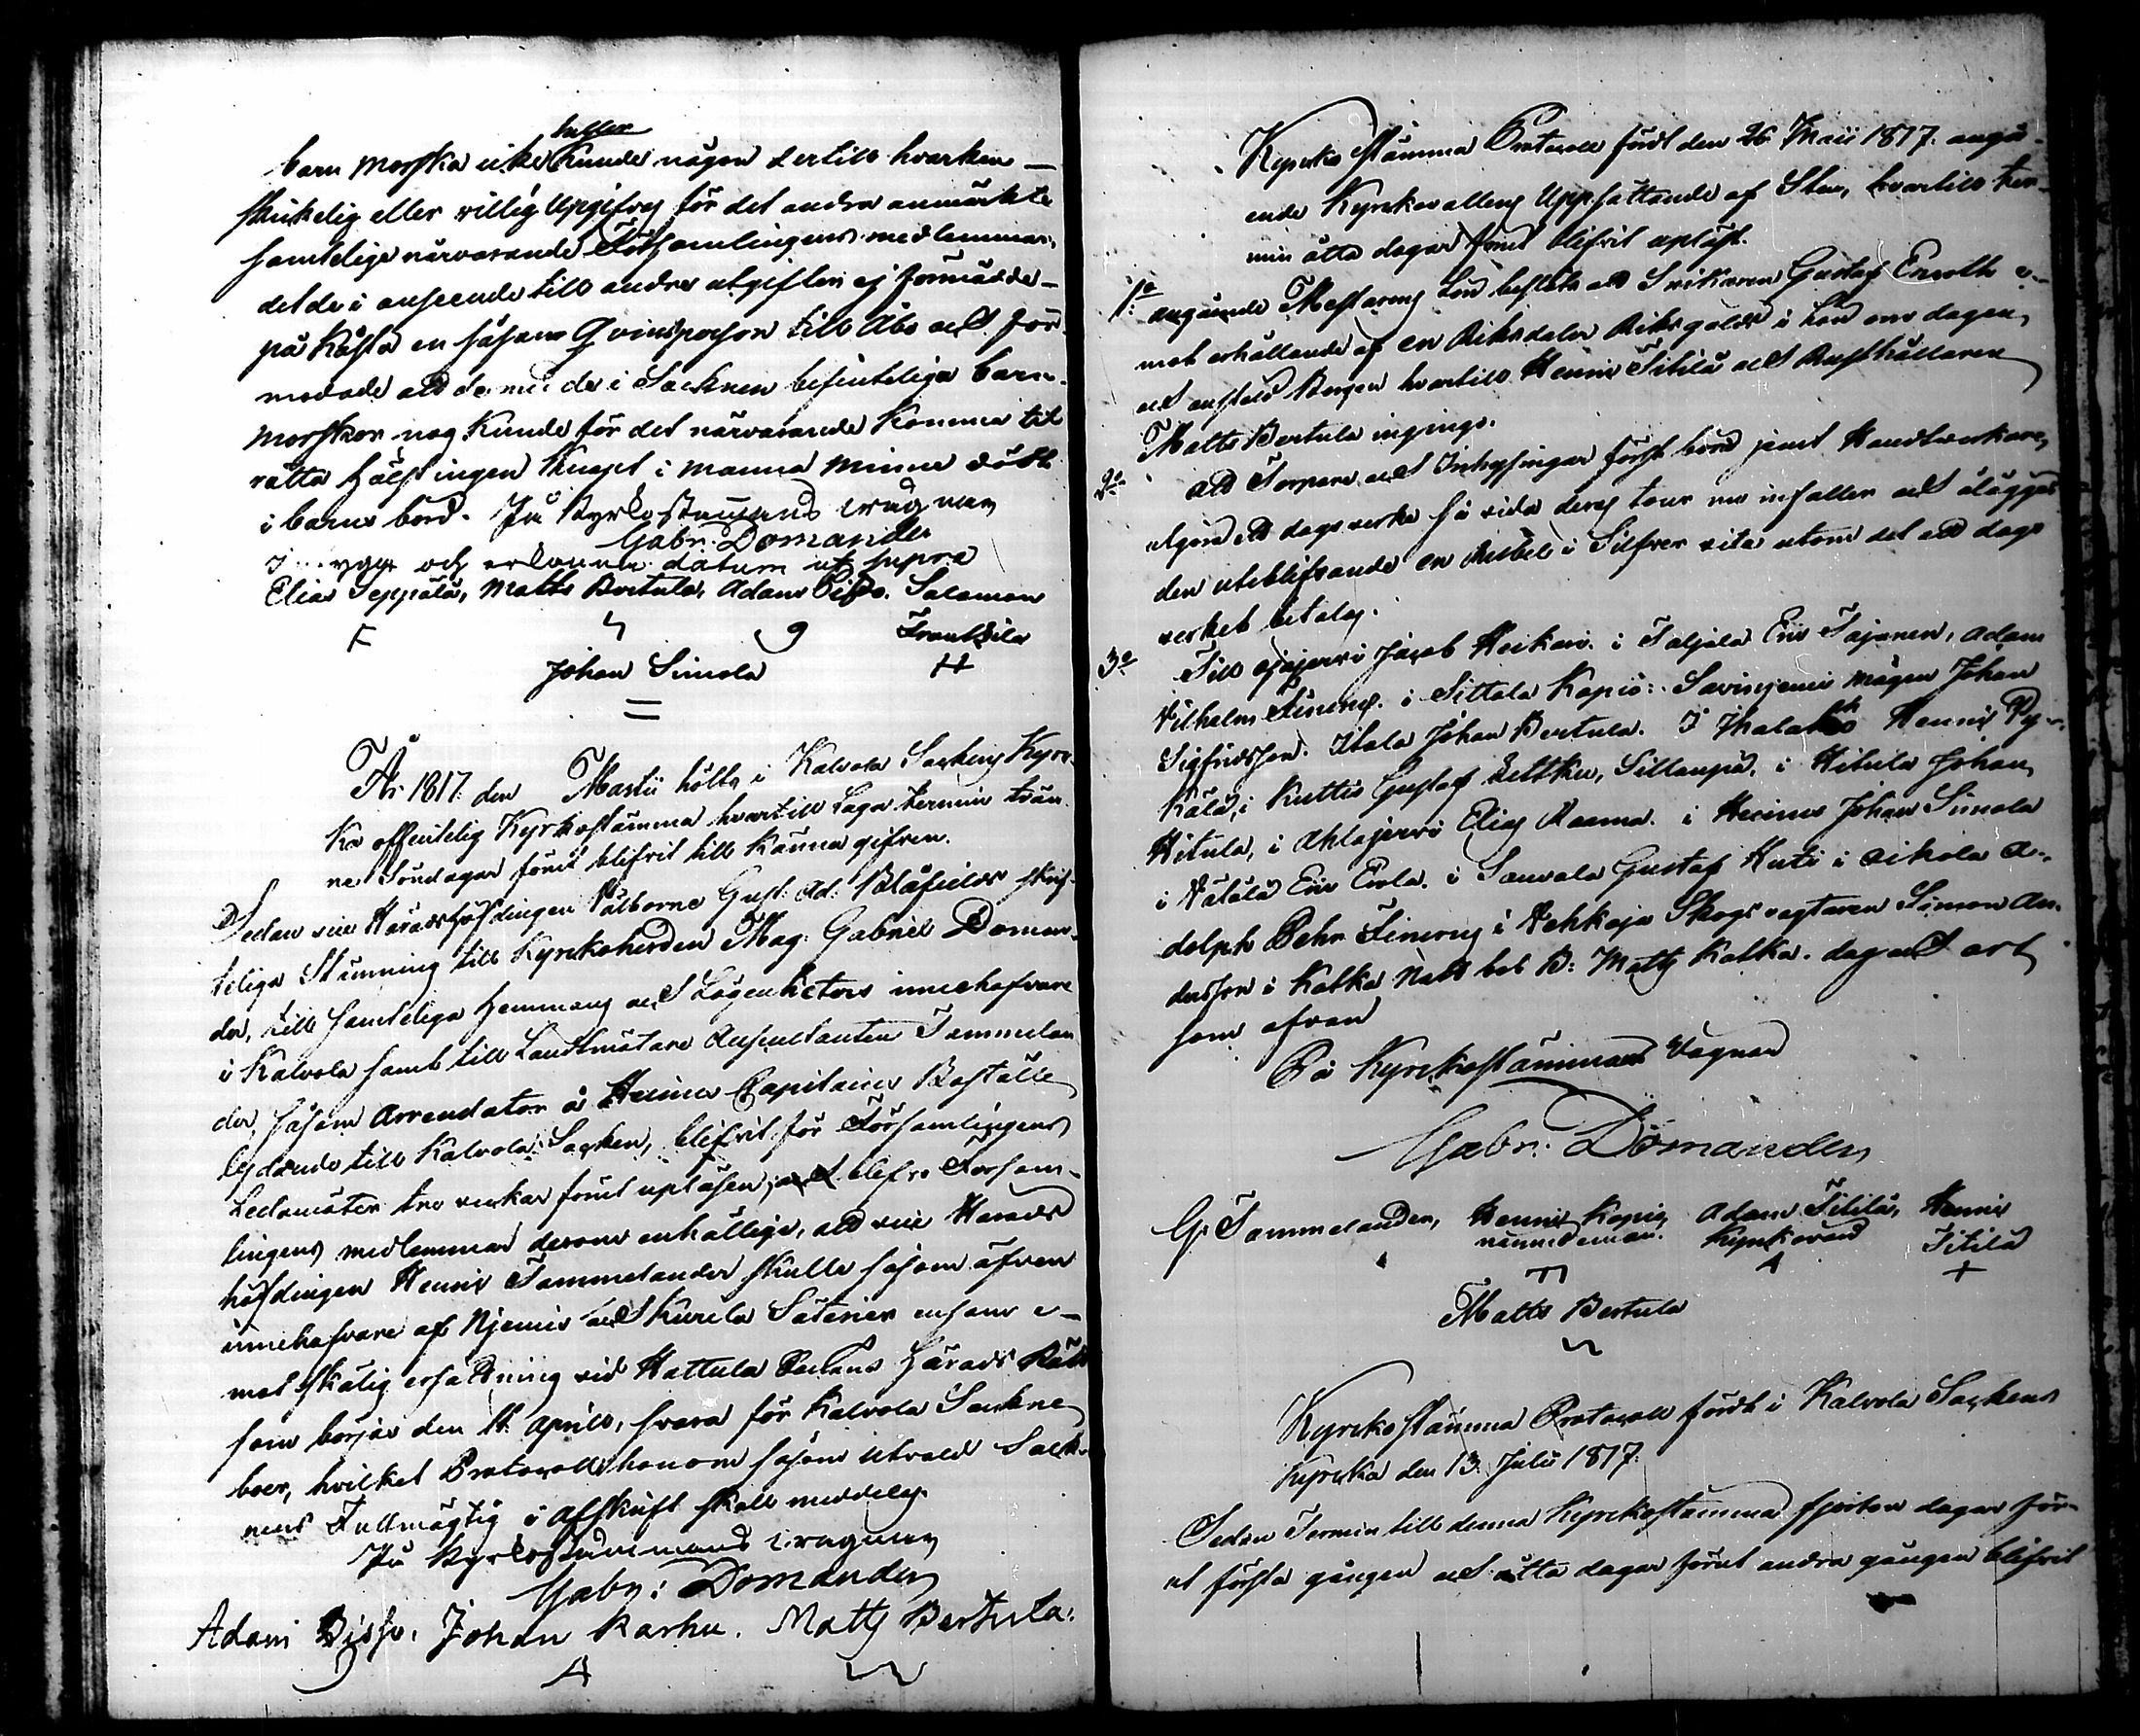 heller
barn morska icke kunde någon dertill hvarken
skickelig eller villig Upgifvas för det andra anmärkte
samtelige närvarande Församlingens medlemmar,
det de i anseende till andra utgifter ej förmådde
på kåsta en sådan Qvinsperson till Åbo och för
modade att de med de i Socknen befinteliga barn
morskor nog kunde för det närvarande komma till
rätta hälst ingen knapt i manna minne dödt
i barns börd. På Kyrkostämmans vägnar
Gabr. Domander
och erkänna datum ut supra
Elias Seppälä, Matts Bertula, Adam Piso. Salomon
Frantsila
Johan Simola
År 1817 den Martii hölts i Kalvola Sockens Kyr
ka offentelig Kyrkostämma hvartill laga termin tvän
ne Söndagar förut blifvit till känna gifven.
Sedan vice Häradshöfdingen Välborne Gust: Ad: Blåfields skrif
teliga Stämning till Kyrckoherden Mag. Gabriel Doman
der, till samteliga Hemmans och Lägenheters innehafvare
i Kalvola samt till Landtmätare Auscultanten Tammelan
der, såsom Arrendator å Heinu Capitains Boställe
lydande till Kalvola Socken, blifvit för Församlingens
Ledamöter tre veckor förut upläsen, och blefvo Försam
lingens medlemmar derom enhällige, att vice Härads
höfdingen Henric Tammelander skulle såsom äfven
innehafvare af Njemis och Kurila Säterier emot e
mot skälig ersättning vid Hattula Sockens Härads Rätt
som börjas den 11 Aprill, svara för Kalvola Sockne
boer, hvilket Protocoll honom såsom utvald Sock
nens Fullmägtig i afskrift skall meddelas
På Kyrkostämmans vägnar
Gabr: Domander
Adam Piso. Johan Karhu. Matts Bertula.
Kyrcko Stämma Protocoll fördt den 26 Maii 1817. angå
ende Kyrckovallens Uppsättande af Sten, hvartill ter
min åtta dagar förut blifvit upläst.
1o angående Mästarens Lön beslöts att Svikaren Gustaf Enroth e
mot erhållande af en Riksdaler Riksgälds i Lön om dagen,
och anstäld Borgen hvartill Henric Sitilä och Rusthållaren
Matts Bertula ingingo.
2o att Torpare och Inhysingar först börd jemt Handtverkare,
utgöra ett dagsverke så vida deras tour nu infaller och ålägges
den uteblifvande en Rubel i Silfver vite utom det att dags
verket betalas.
3o Till Ojajervi Jacob Heikari. i Taljala Eric Tajanen, Adam
Vilhelm Finerus. i Sittala Kapio: Savinjemi mågen Johan
Sigfridsson. Itala Johan Bertula. I Henric Py
kälä, i Kuttis Gustaf Lettku, Sillanpä, i Hitula Johan
Hitula, i Ahlajervi Elias Raama. i Heinu Johan Simola
i Vätälä Eric Erola. i Sauvala Gustaf Huti i Aikola A
dolph Pehr Finerus i Vehkoja Skogs vagtaren Simon An
dersson i Kalka Natt bol B: Matts Kalka. dag och ort
som ofvan
På Kyrckostämmans Vägnar
Gabr: Domander
G: Tammelander, Henric Kapio, Adam Sitilä, Henric
nämndeman. Kyrkovärd Sitilä
Matts Bertula
Kyrckostämma Protocoll fördt i Kalvola Sockens
Kyrcka den 13 Julii 1817.
Sedan Termin till denna Kyrckostämma fjorton dagar för
ut första gången och åtta dagar förut andra gången blifvit